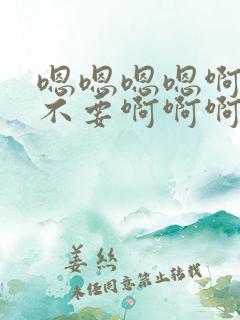 嗯嗯嗯嗯啊
不要啊啊啊
姜丝
未经同意禁止转载